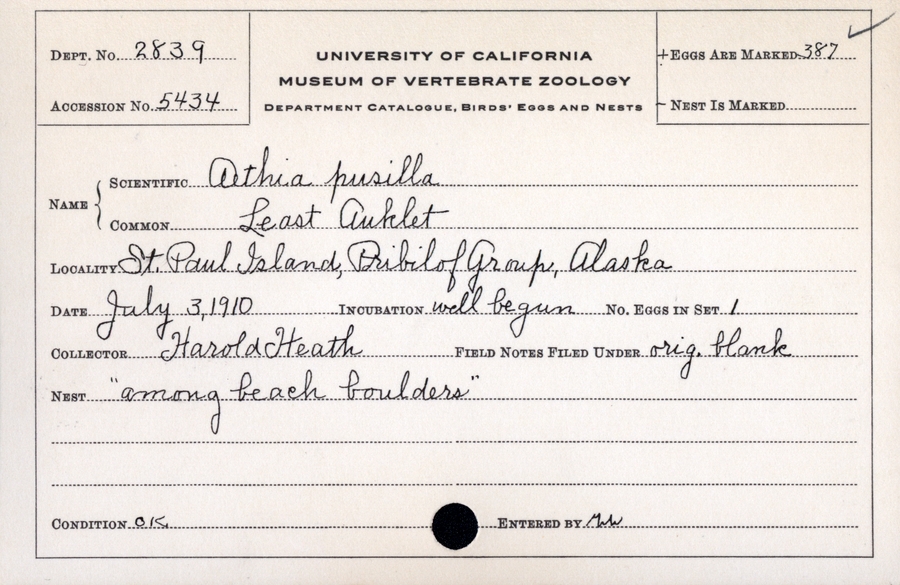 DEPT. No. 2839
ACCESSION No. 5434
UNIVERSITY OF CALIFORNIA
MUSEUM OF VERTEBRATE ZOOLOGY
DEPARTMENT CATALOGUE, BIRDS' EGGS AND NESTS
+ EGGS ARE MARKED 387
- NEST IS MARKED
NAME
SCIENTIFIC Aethia pusilla
COMMON Least Auklet
LOCALITY St. Paul Island, Pribilof Group, Alaska
DATE July 3, 1910 INCUBATION well begun No. EGGS IN SET 1
COLLECTOR Harold Heath FIELD NOTES FILED UNDER orig. blank
NEST "among beach boulders"
CONDITION OK ENTERED BY